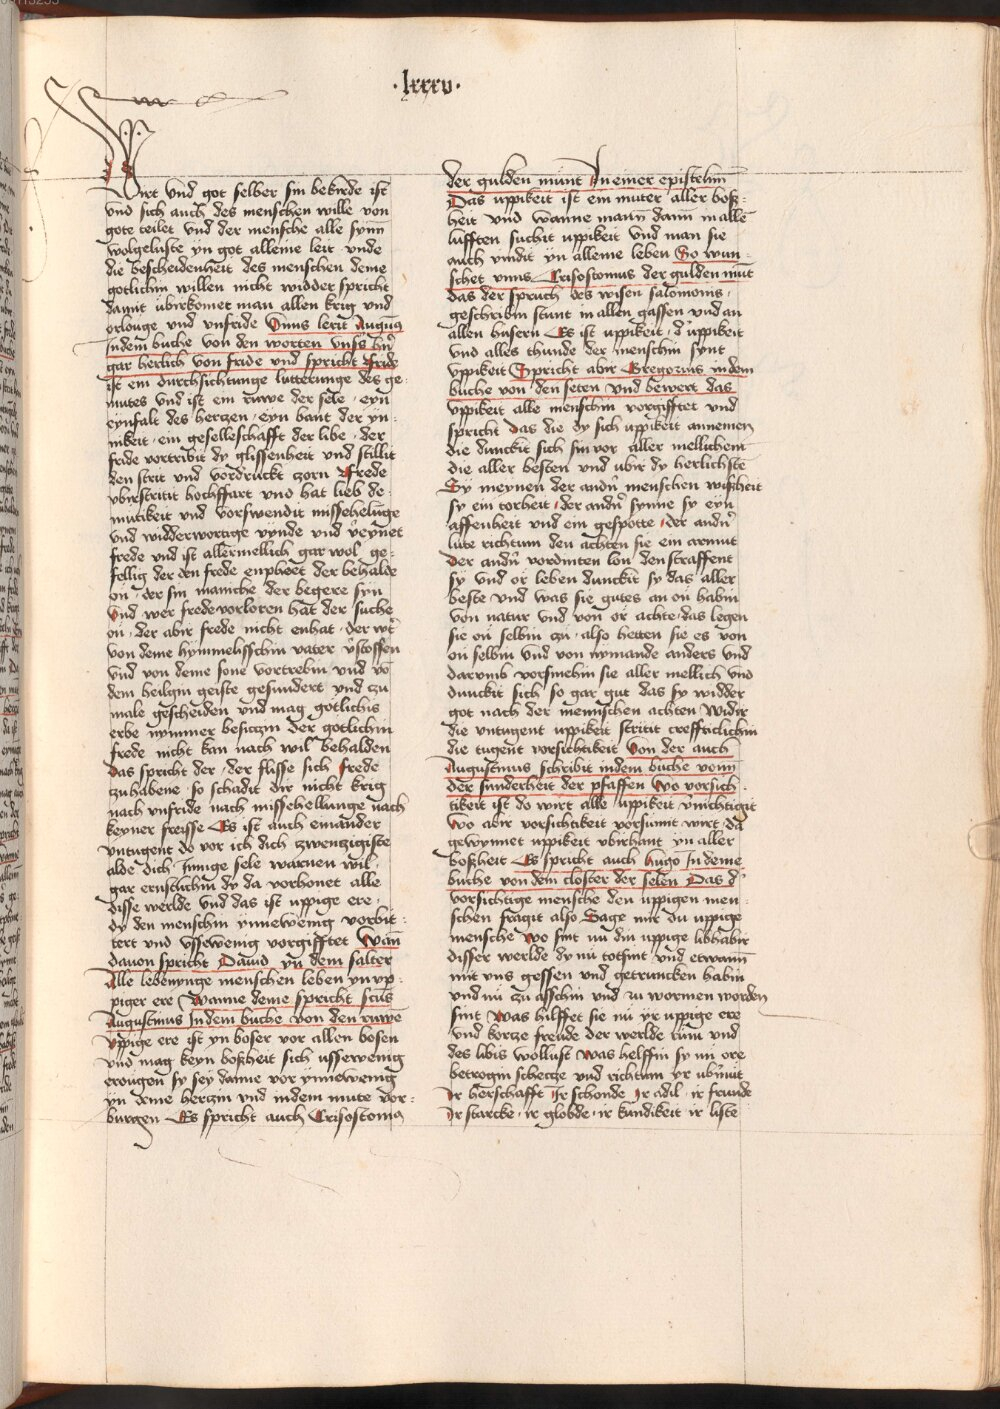 ·lxxxv·
Wirt vnd got selber sin bekirde ist
vnd sich auch des menschen wille von
gote teilet vnd der mensche alle synn
wolgeluste yn got alleine leit vnde
die bescheidenheit des menschen deme
gotlichin willen nicht widder spricht
damit vbirkomet man allen krig vnd
orlouge vnd vnfride Vnns lerit Augus
Indem buche von den worten vnsß hr̄
gar herlich von fride vnd spricht Fride
ist ein durchsichtunge lutterunge des ge⸗
mutes vnd ist ein ruwe der sele · eyn
eynfalt des herczen · eyn bant der yn⸗
nikeit · ein geselleschafft der libe · der
fride vortribit dy glissenheit vnd stillit
den strit vnd vordruckt czorn Frede
vbirstritit hochffart vnd hat lieb de⸗
mutikeit vnd vorswendit missehelunge
vnd widderwortige vynde vnd v̄eynet
frede vnd ist allermellich gar wol ge⸗
fellig der den frede enpheet der behalde
on · der sin mamche der begere syn
Vnd wer frede vorloren hat der suche
on · der abir frede nicht enhat · der w't
von deme hymmelisschin vater v̄stossen
vnd von deme sone vortrebin vnd vō
dem heiligin geiste gesundert vnd zu
male gescheiden vnd mag gotlichis
erbe nymmer besiczin der gotlichin
frede nicht kan nach wil behalden
Das spricht der · der flisse sich frede
zuhabene · so schadit dir nicht krig
nach vnfride nach missehellunge nach
keyner freisse Es ist auch einander
vntugent do vor ich dich zwenzigiste
alde dich Innige sele warnen wil ·
gar ernstlichin dy da vorhonet alle
disse werlde vnd das ist uppige ere ·
dy den menschin ynnewenig vorbit⸗
tert vnd vssewenig vorgifftet Wan̄
dauon spricht Dauid yn dem salter
Alle lebenynge menschen leben yn vp⸗
piger ere Wanne deme spricht sctūs
Augustinus Indem buche von den ruwē
Vppige ere ist yn boser vor allen bosen
vnd mag keyn boßheit sich vssewenig
erougen sy sey danne vor ynnewenig
yn deme herczin vnd indem mute vor⸗
burgen Es spricht auch Crisostomus
der gulden munt In einer epistelnn
Das uppikeit ist ein muter aller boß⸗
heit vnd wanne mann dann in alle
lufften suchit uppikeit vnd man sie
auch vindit yn alleine leben So wun⸗
schet vnns Crisostomus der gulden mūt
das der spruch des wisen salomonis ·
geschribin stunt in allen gassen vnd an
allen husern Es ist uppikeit · d' uppikeit
vnd alles thunde der menschin synt
vppikeit Spricht abir Gregorius indem
buche von den seten vnd bewert das
vppikeit alle menschin vorgifftet vnd
spricht Das die dy sich uppikeit annemen
die dunckit sich sin vor aller mellichem
die aller besten vnd vbir dy herlichste
Sy meynen der andn̄ menschen wißheit
sy ein torheit · der andn̄ synne sy eyn
affenheit vnd ein gespotte · der andn̄
lute richtum den achten sie ein armut
Der andn̄ vordinten lon den straffent
sy vnd or leben dunckit sy das aller
beste vnd was sie gutes an on habin
von natur vnd von or achte · das legen
sie on selbin zu · also hetten sie es von
on selbin vnd von nymande anders vnd
darvmb vorsmehin sie aller mellich vnd
dunckit sich so gar gut das sy widder
got nach der mennschen achten Widir
die vntugent uppikeit stritit treffticlichin
die tugent vorsichtikeit Von der auch
Augustinus schribit indem buche vonn
der sunderheit der pfaffen Wo vorsich⸗
tikeit ist do wirt alle uppikeit v̄nichtigit
Wo abir vorsichtikeit vorsumit wirt · da
gewynnet uppikeit vbirhant yn aller
boßheit Es spricht auch hugo In deme
buche von dem closter der selen Das d'
vorsichtige mensche den uppigen men⸗
schen fragit also Sage mir du uppige
mensche Wo sint nu din uppige libhabir
disser werlde dy nu tot sint vnd etwann
mit vns gessen vnd getruncken habin
vnd nu zu asschin vnd zu wormen worden
sint Was hilffet sie nu yr uppige ere
vnd korcze freude der werlde rum vnd
des libis wollust Was helffin sy nu ore
betrogin schecze vnd richtum yr vb̄mut
Ir herschafft Ir schonde Ir adil · ir frunde
Ir starcke · ir globde · ir kundikeit ir liste